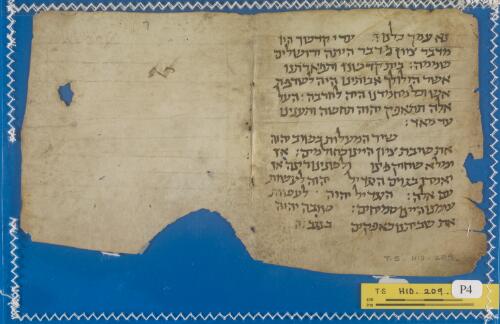 נא עמך כלנו: ערי קדשך היו
מדבר ציון מדבר היתה ירושלים
שממה: בית קדשנו ותפארתנו
אשר הללוך אבותינו היה לשרפת
אש וכל מחמדינו היה לחרבה: העל
אלה תתאפק יהוה תחשה ותעננו
עד מאד:
שיר המעלות בשוב יהוה
את שיבת ציון היינו כחולמים: אז
ימלא שחוק פינו ולשוננו רינה אז
יאמרו בגוים הגדיל יהוה לעשות
עם אלה: הגדיל יהוה לעשות
עמנו היינו שמיחים: שובה יהוה
את שביתנו כאפיקים בנגב:
T-S. H10. 209.
T-S H10. 209. P4